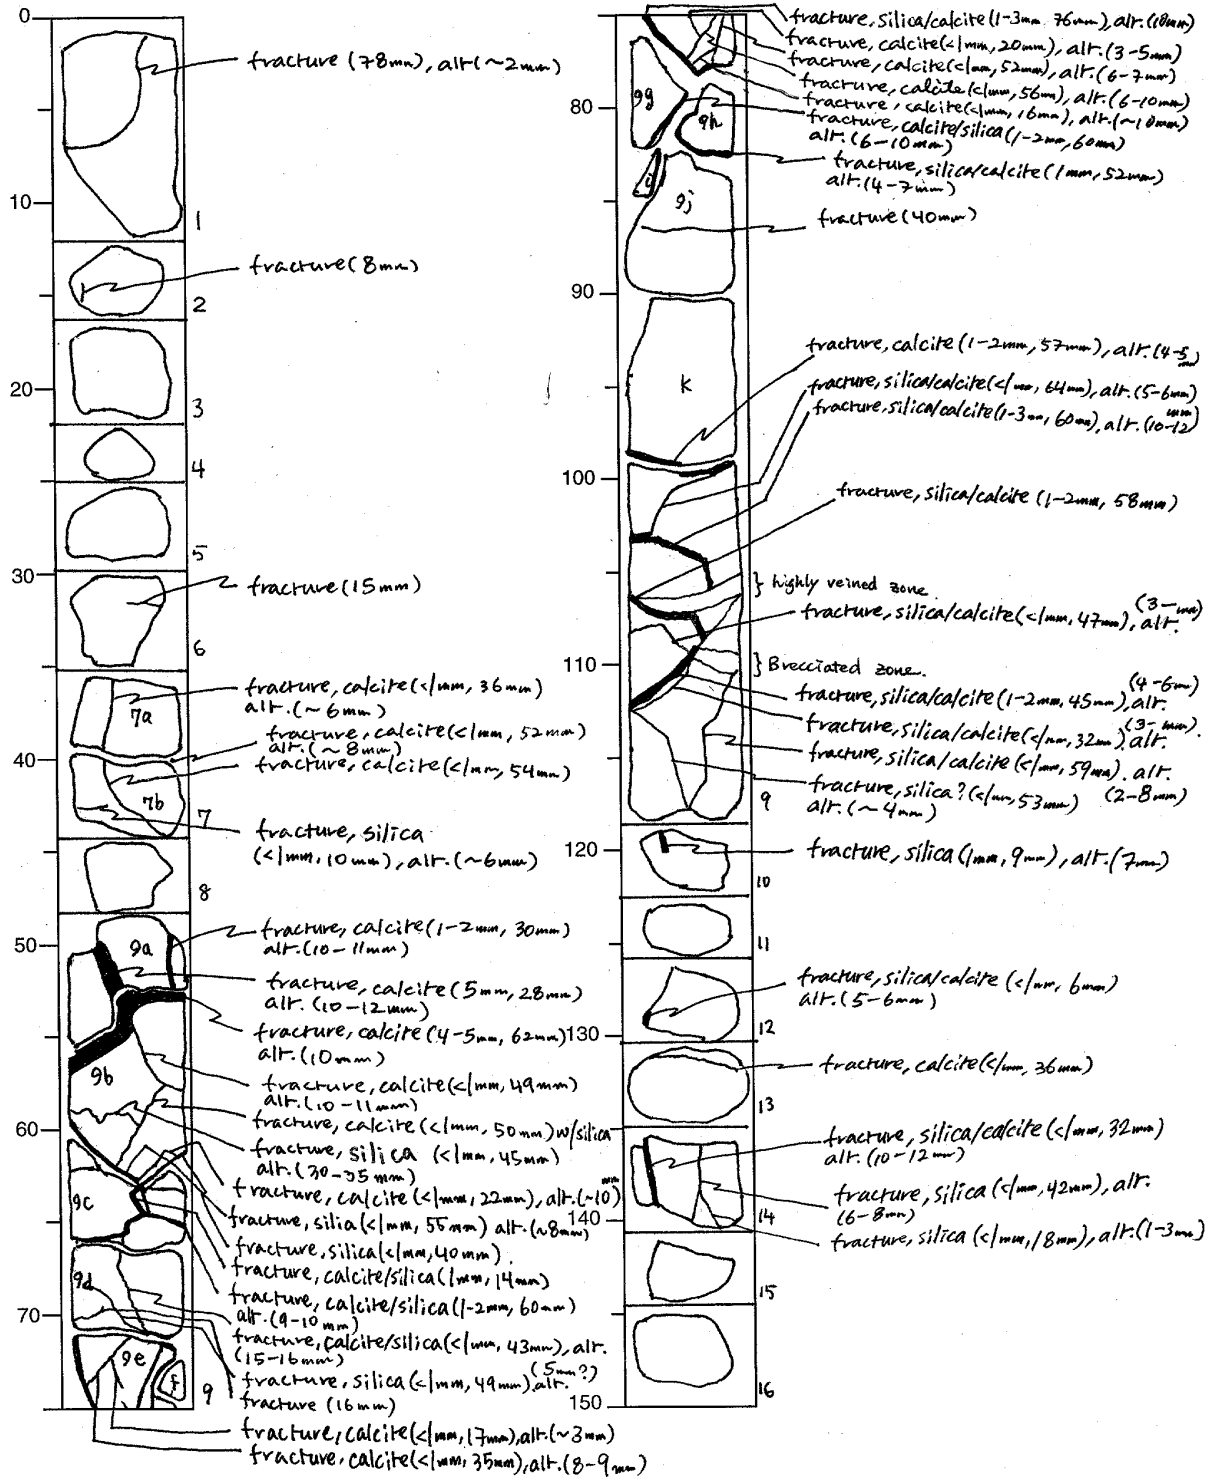 0
fracture (78mm), alt (~2mm)
10
1
fracture (8mm)
2
20
3
4
5
30
fracture (15mm)
6
fracture, calcite (<1mm, 36mm)
alt. (~6mm)
7a
fracture, calcite (<1mm, 52mm)
alt. (~8mm)
40
fracture, calcite (<1mm, 54mm)
7b
7
fracture, silica
(<1mm, 10mm), alt. (~6mm)
8
50
9a
fracture, calcite (1-2mm, 30mm)
alt. (10-11mm)
fracture, calcite (5mm, 28mm)
alt. (10-12mm)
fracture, calcite (4-5mm, 62mm)
alt. (10mm)
9b
fracture, calcite (<1mm, 49mm)
alt. (10-11mm)
fracture, calcite (<1mm, 50mm) w/silica
60
fracture, silica (<1mm, 45mm)
alt. (30-35mm)
fracture, calcite (<1mm, 22mm), alt. (~10mm)
9c
fracture, silia (<1mm, 55mm) alt. (~8mm)
fracture, silica (<1mm, 40mm)
fracture, calcite/silica (1mm, 14mm)
9d
fracture, calcite/silica (1-2mm, 60mm)
alt. (9-10mm)
70
fracture, calcite/silica (<1mm, 43mm), alt.
(15-16mm)
9e
f
9
fracture, silica (<1mm, 49mm), alt. (5mm?)
fracture (16mm)
fracture, calcite (<1mm, 17mm), alt. (~3mm)
fracture, calcite (<1mm, 35mm), alt. (8-9mm)
fracture, silica/calcite (1-3mm, 76mm), alt. (10mm)
fracture, calcite (<1mm, 20mm), alt. (3-5mm)
fracture, calcite (<1mm, 52mm), alt. (6-7mm)
fracture, calcite (<1mm, 56mm), alt. (6-10mm)
fracture, calcite (<1mm, 16mm), alt. (~10mm)
fracture, calcite/silica (1-2mm, 60mm)
alt. (6-10mm)
9g
80
9h
fracture, silica/calcite (1mm, 52mm)
alt. (4-7mm)
i
9j
fracture (40mm)
90
fracture, calcite (1-2mm, 57mm), alt. (4-5mm)
k
fracture, silica/calcite (<1mm, 64mm), alt. (5-6mm)
fracture, silica/calcite (1-3mm, 60mm), alt. (10-12mm)
100
fracture, silica/calcite (1-2mm, 58mm)
} highly veined zone
fracture, silica/calcite (<1mm, 47mm), alt. (3-mm)
110
} Brecciated zone.
fracture, silica/calcite (1-2mm, 45mm), alt. (4-6mm)
fracture, silica/calcite (<1mm, 32mm), alt. (3-mm).
fracture, silica/calcite (<1mm, 59mm), alt.
(2-8mm)
fracture, silica? (<1mm, 53mm)
alt. (~4mm)
9
120
fracture, silica (1mm, 9mm), alt. (7mm)
10
11
fracture, silica/calcite (<1mm, 6mm)
alt. (5-6mm)
12
130
fracture, calcite (<1mm, 36mm)
13
fracture, silica/calcite (<1mm, 32mm)
alt. (10-12mm)
fracture, silica (<1mm, 42mm), alt.
(6-8mm)
14
140
fracture, silica (<1mm, 18mm), alt. (1-3mm)
15
16
150